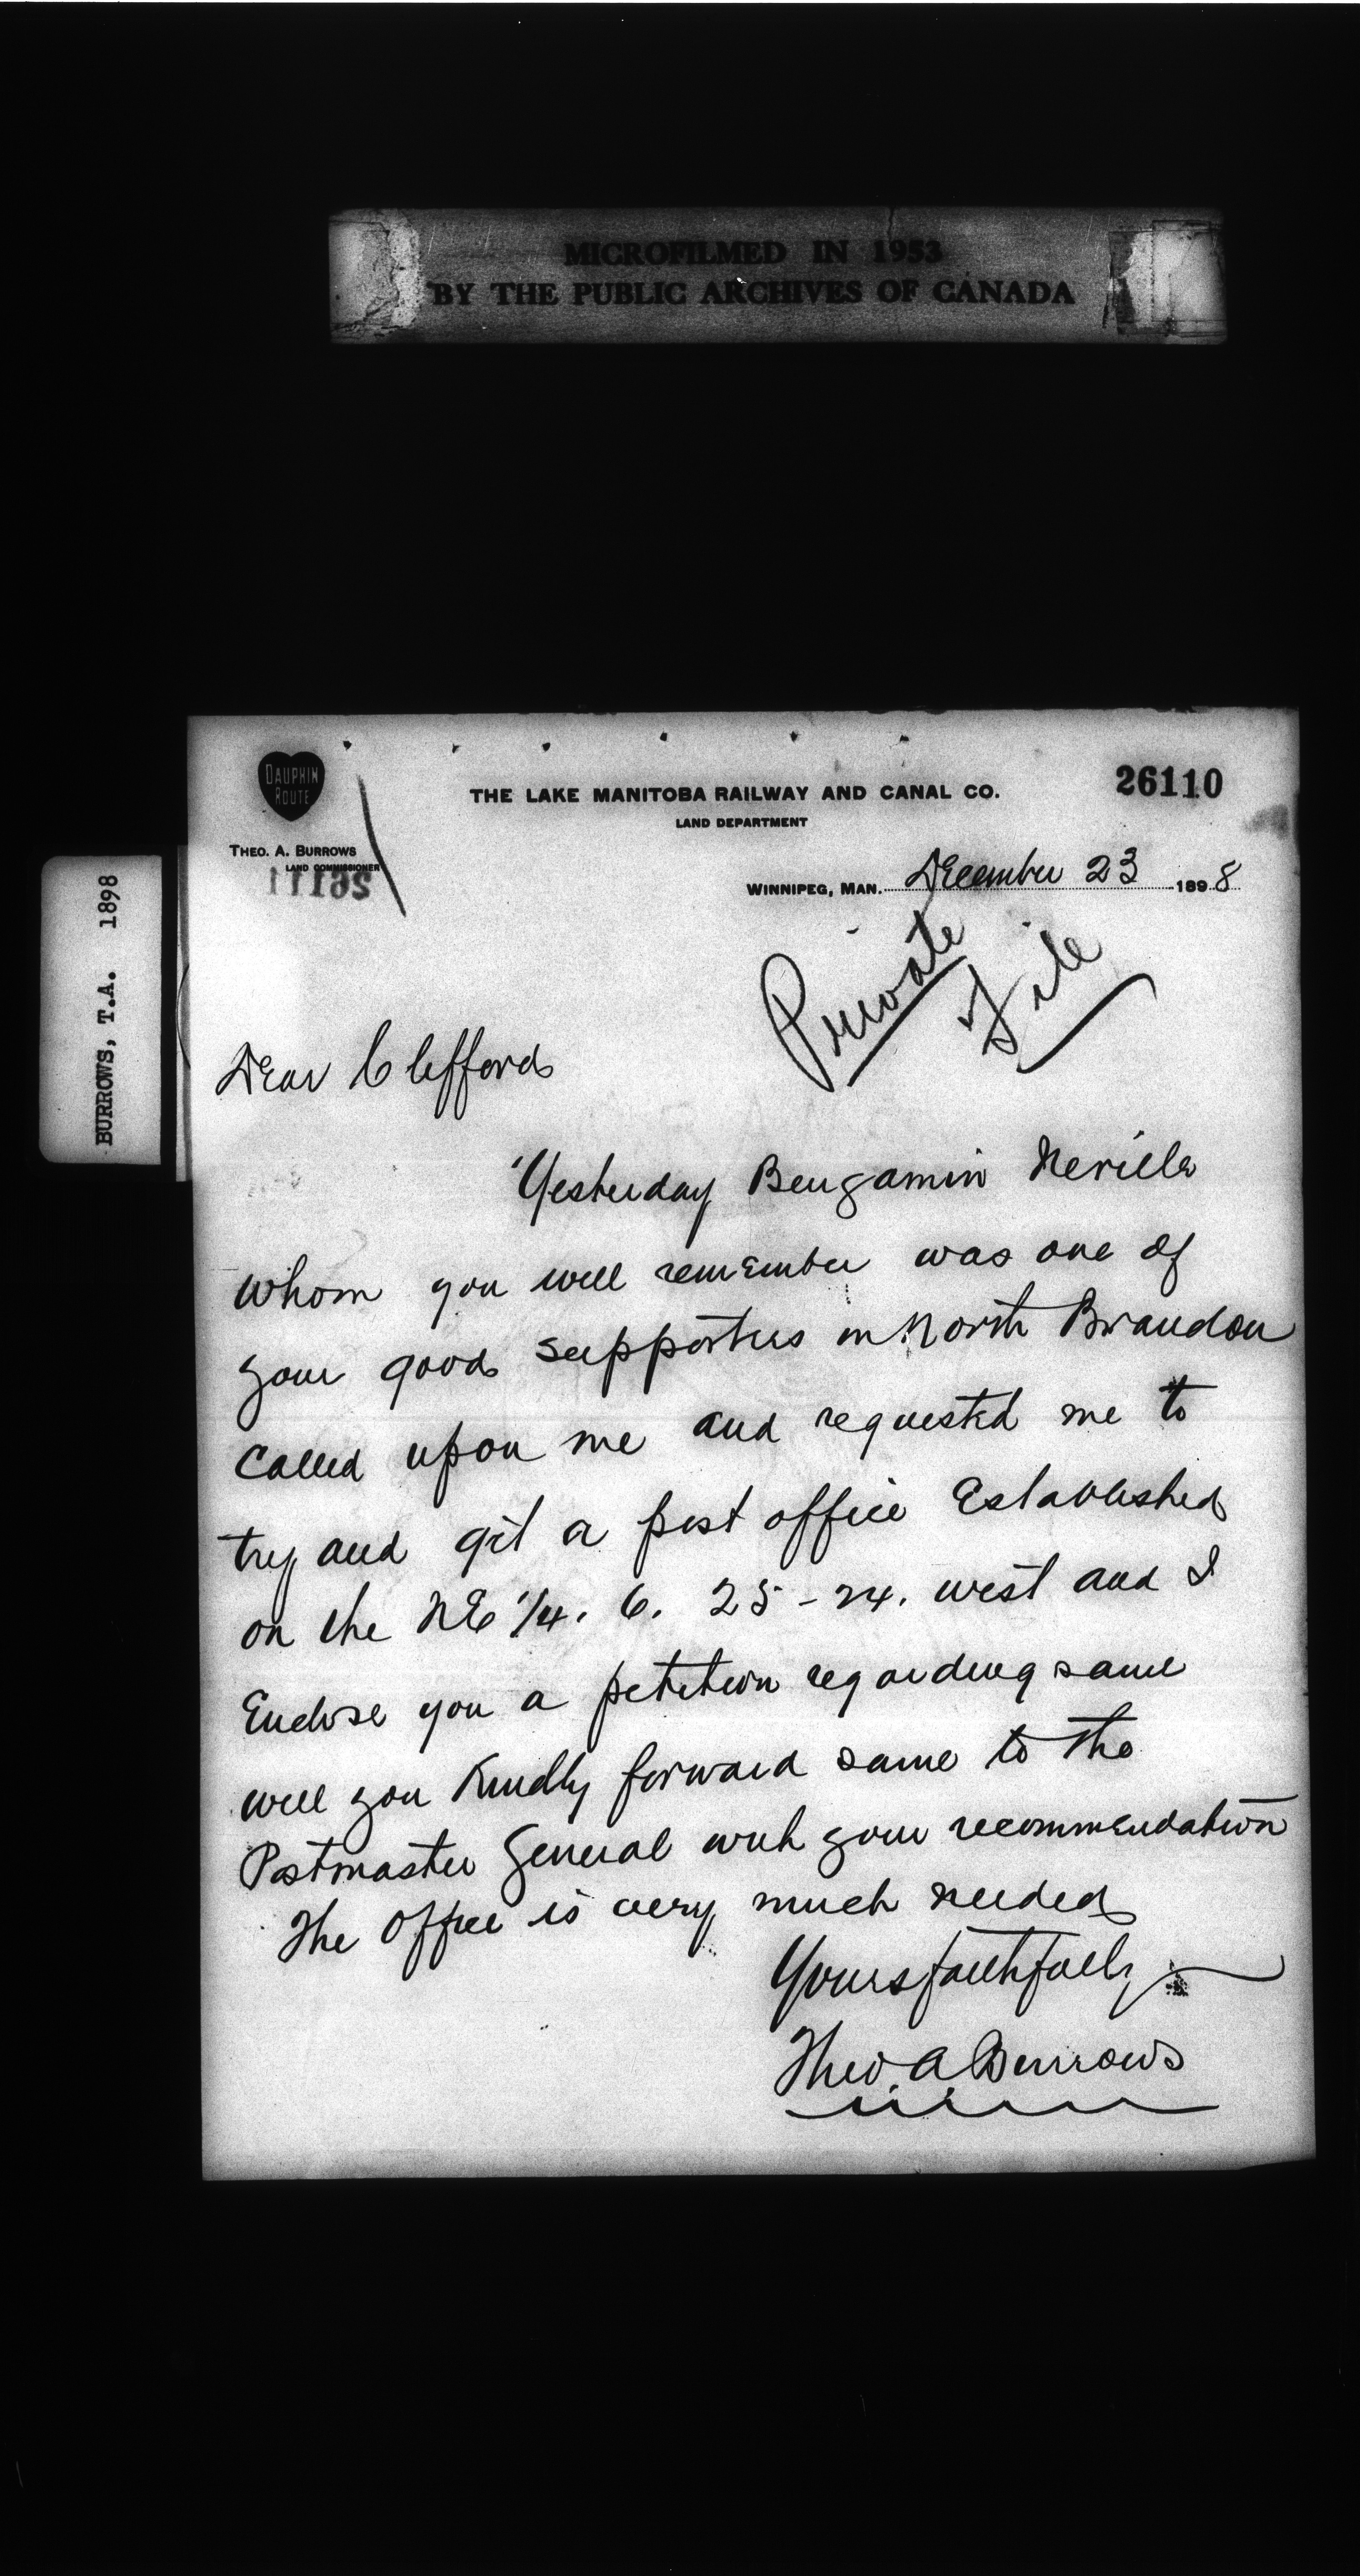 MICROFILMED IN 1953
BY THE PUBLIC ARCHIVES OF CANADA
BURROWS, T.A. 1898
DAUPHIN
ROUTE
THE LAKE MANITOBA RAILWAY AND CANAL CO.
26110
LAND DEPARTMENT
THEO. A. BURROWS
LAND COMMISSIONER
WINNIPEG, MAN. December 23 1898
Private
File
Dear Clifford
Yesterday Benjamin Neville
whom you will remember was one of
your good supporters in North Brandon
Called upon me and requested me to
try and get a post office Established
on the NE 1/4. 6. 25 - 24. west and I
Enclose you a petition regarding same
will you Kindly forward same to the
Postmaster General with your recommendation
The office is very much needed
Yours faithfully
Theo. A Burrows